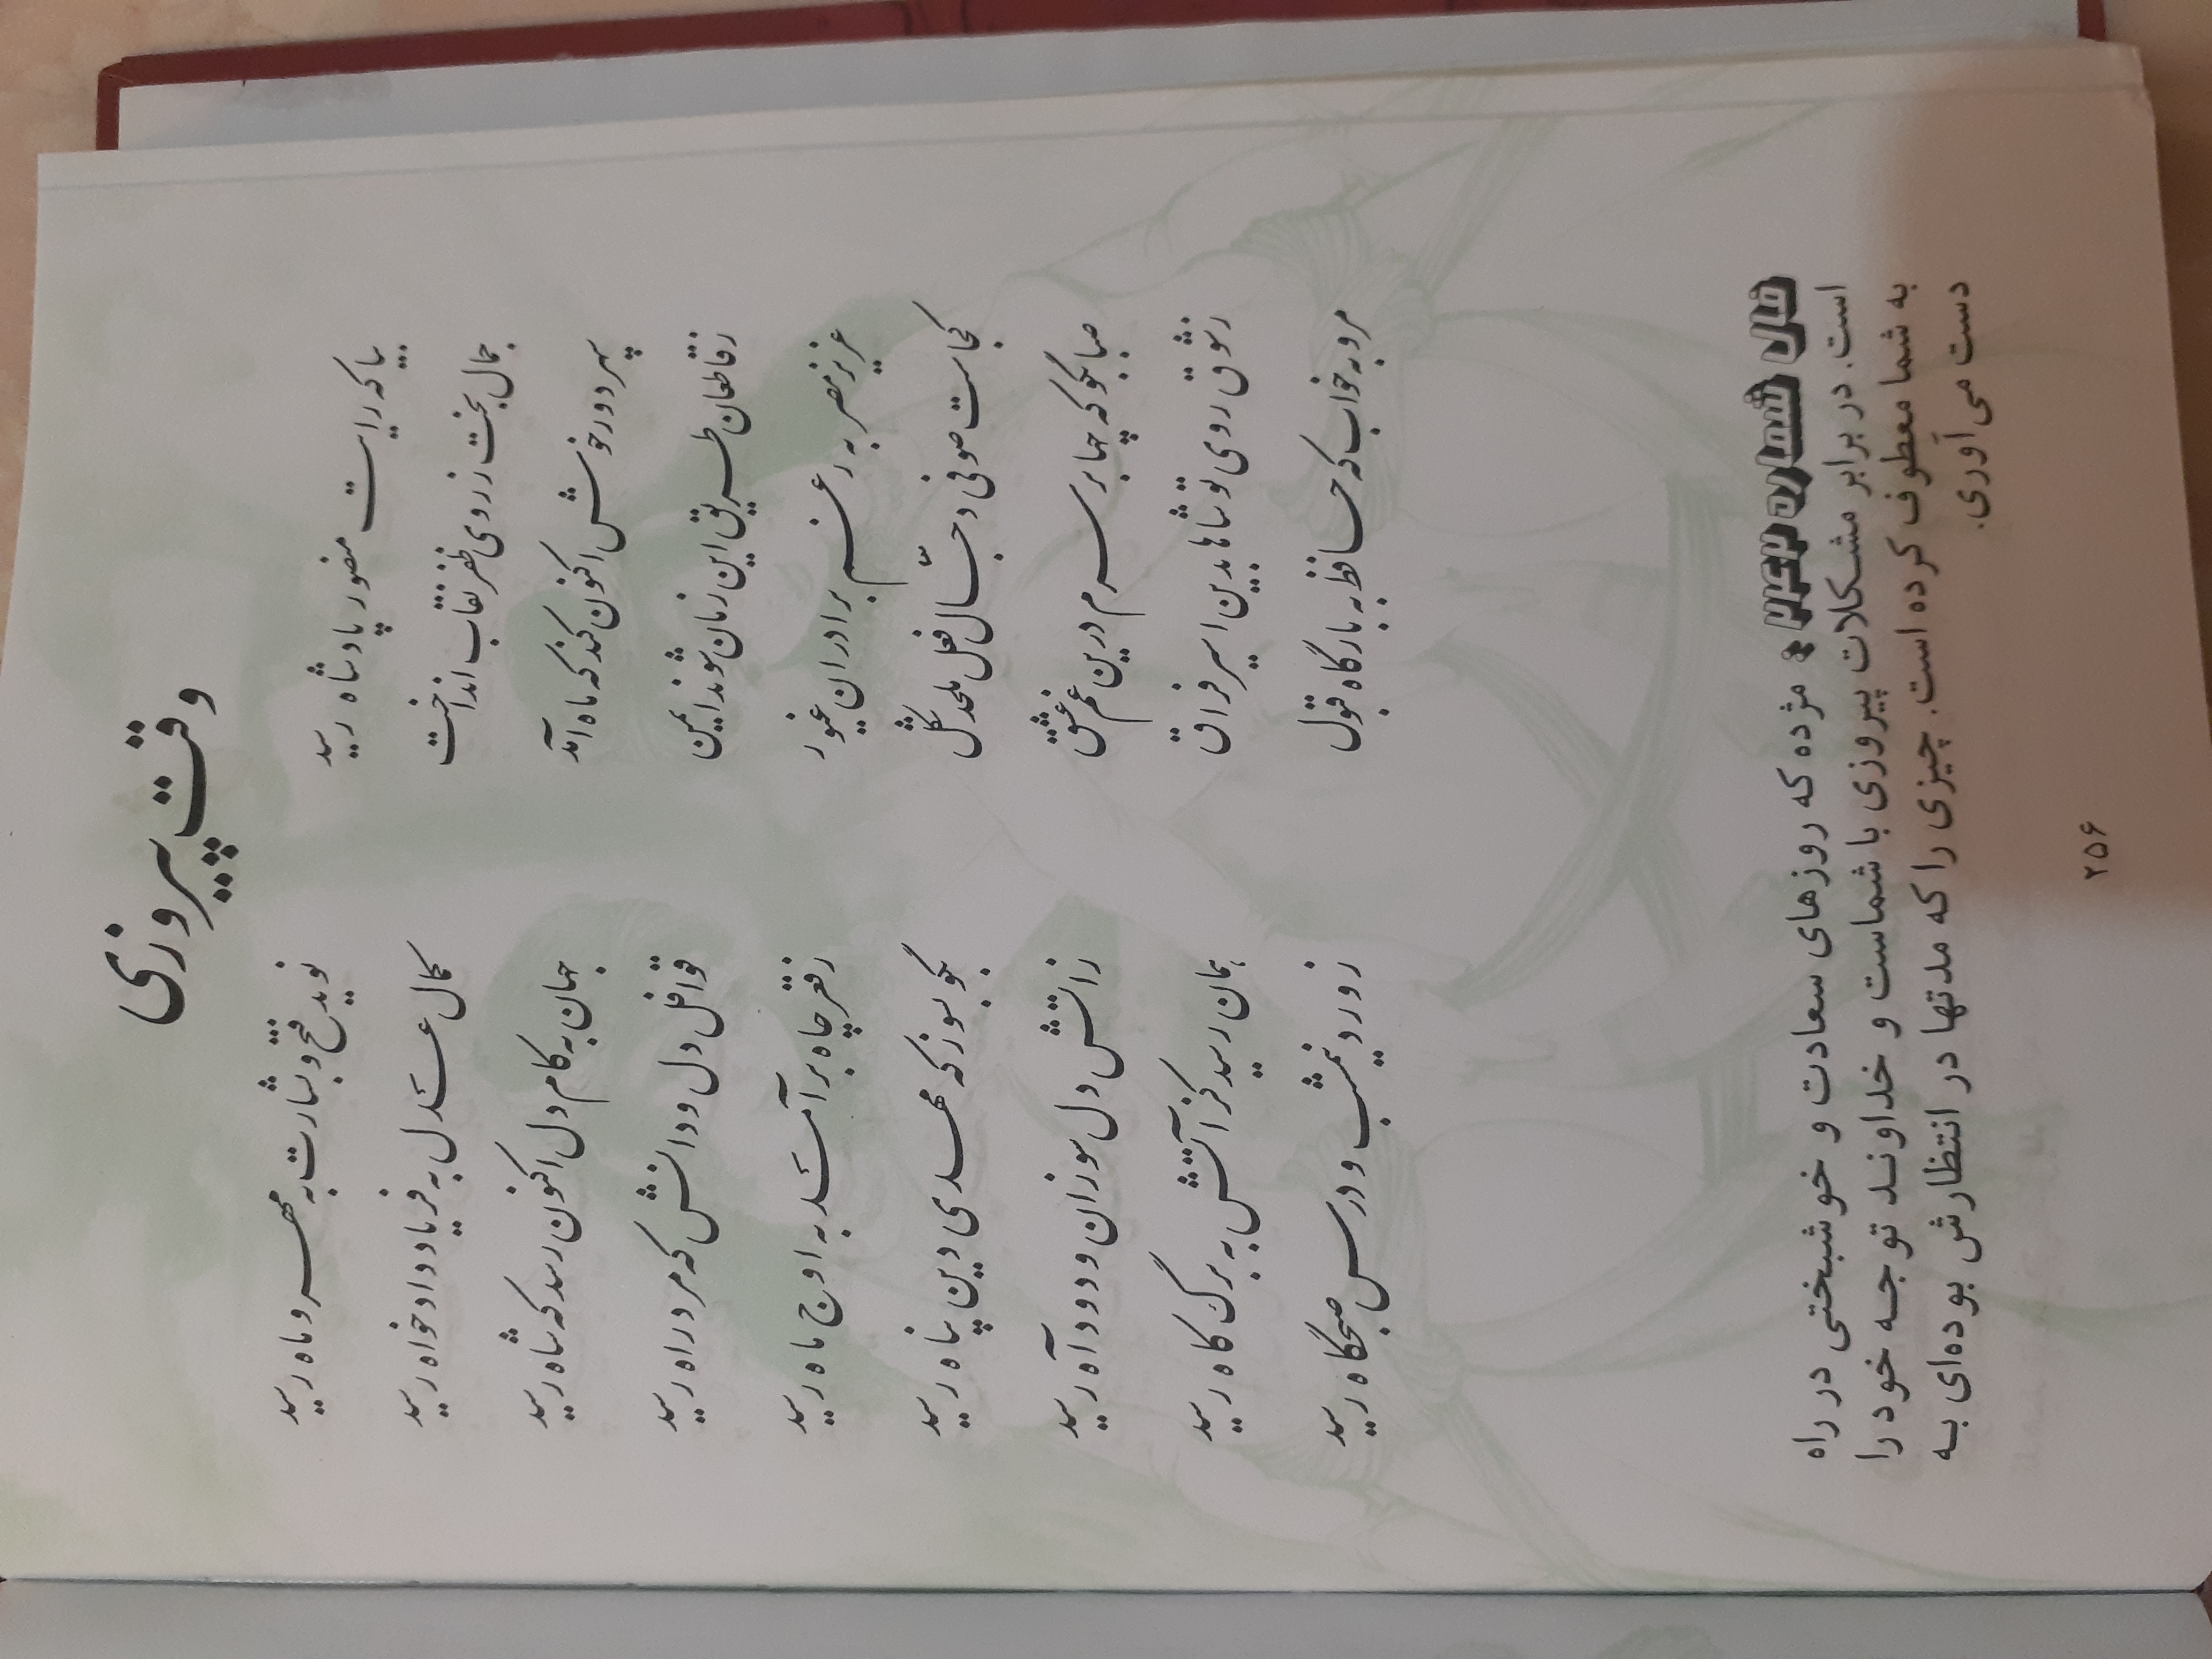 وقت پیروزی
بیا که رایت منصور پادشاه رسید نوید فتح و بشارت به مهر و ماه رسید
جمال بخت ز روی ظفر نقاب انداخت کمال عدل به فریاد دادخواه رسید
سپهر دور خوش اکنون کند که ماه آمد جهان به کام دل اکنون رسد که شاه رسید
ز قاطعان طریق این زمان شوند ایمن قوافل دل و دانش که مرد راه رسید
عزیز مصر به رغم برادران غیور ز قعر چاه برآمد به اوج ماه رسید
کجاست صوفی دجّال فعل ملحد شکل بگو بسوز که مهدی دین پناه رسید
صبا بگو که چها بر سرم درین غم عشق ز آتش دل سوزان و دود آه رسید
ز شوق روی تو شاها بدین اسیر فراق همان رسید کز آتش به برگ کاه رسید
مرو به خواب که حافظ به بارگاه قبول ز ورد نیمشب و درس صبحگاه رسید
فال شماره ۲۴۲: مژده که روزهای سعادت و خوشبختی در راه
است. در برابر مشکلات پیروزی با شماست و خداوند توجه خود را
به شما معطوف کرده است. چیزی را که مدتها در انتظارش بوده‌ای به
دست می‌آوری.
۲۵۶